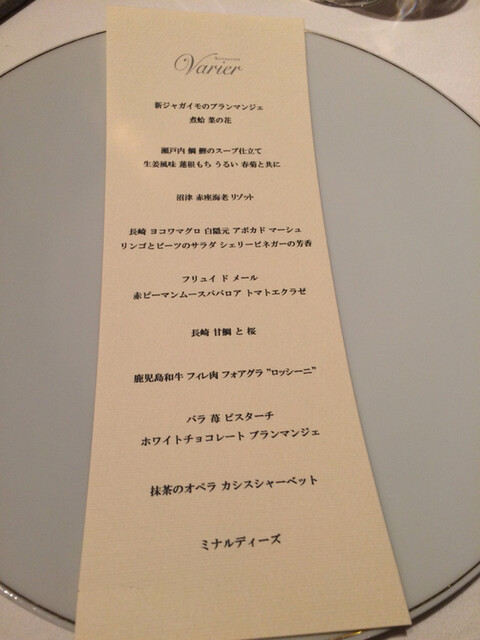 Restaurant
Varier
新ジャガイモのブランマンジェ
煮蛤 菜の花
瀬戸内 鯛 鰹のスープ仕立て
生姜風味 蓮根もち うるい 春菊と共に
沼津 赤座海老 リゾット
長崎 ヨコワマグロ 白隠元 アボカド マーシュ
リンゴとビーツのサラダ シェリービネガーの芳香
フリュイ ド メール
赤ピーマンムースババロア トマトエクラゼ
長崎 甘鯛 と 桜
鹿児島和牛 フィレ肉 フォアグラ "ロッシーニ"
バラ 苺 ピスターチ
ホワイトチョコレート ブランマンジェ
抹茶のオペラ カシスシャーベット
ミナルディーズ